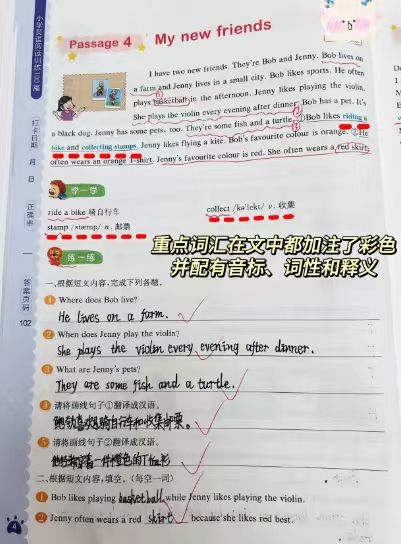 小学英语阅读训练100篇
打卡日期 月 日
正确率
答案页码 102
Passage 4 My new friends
I have two new friends. They're Bob and Jenny. Bob lives on
a farm and Jenny lives in a small city. Bob likes sports. He often
plays basketball in the afternoon. Jenny likes playing the violin.
She plays the violin every evening after dinner. Bob has a pet. It's
a black dog. Jenny has some pets, too. They're some fish and a turtle. ①Bob likes riding a
bike and collecting stamps. Jenny likes flying a kite. Bob's favourite colour is orange. ②He
often wears an orange T-shirt. Jenny's favourite colour is red. She often wears a red skirt.
学一学
ride a bike 骑自行车 collect /kə'lekt/ v. 收集
stamp /stæmp/ n. 邮票
重点词汇在文中都加注了彩色
并配有音标、词性和释义
练一练
一、根据短文内容,完成下列各题。
1 Where does Bob live?
He lives on a farm.
2 When does Jenny play the violin?
She plays the violin every evening after dinner.
3 What are Jenny's pets?
They are some fish and a turtle.
4 请将画线句子①翻译成汉语。
鲍勃喜欢骑自行车和收集邮票。
5 请将画线句子②翻译成汉语。
他经常穿着一件橙色的T恤衫
二、根据短文内容,填空。(每空一词)
1 Bob likes playing basketball while Jenny likes playing the violin.
2 Jenny often wears a red skirt because she likes red best.
4